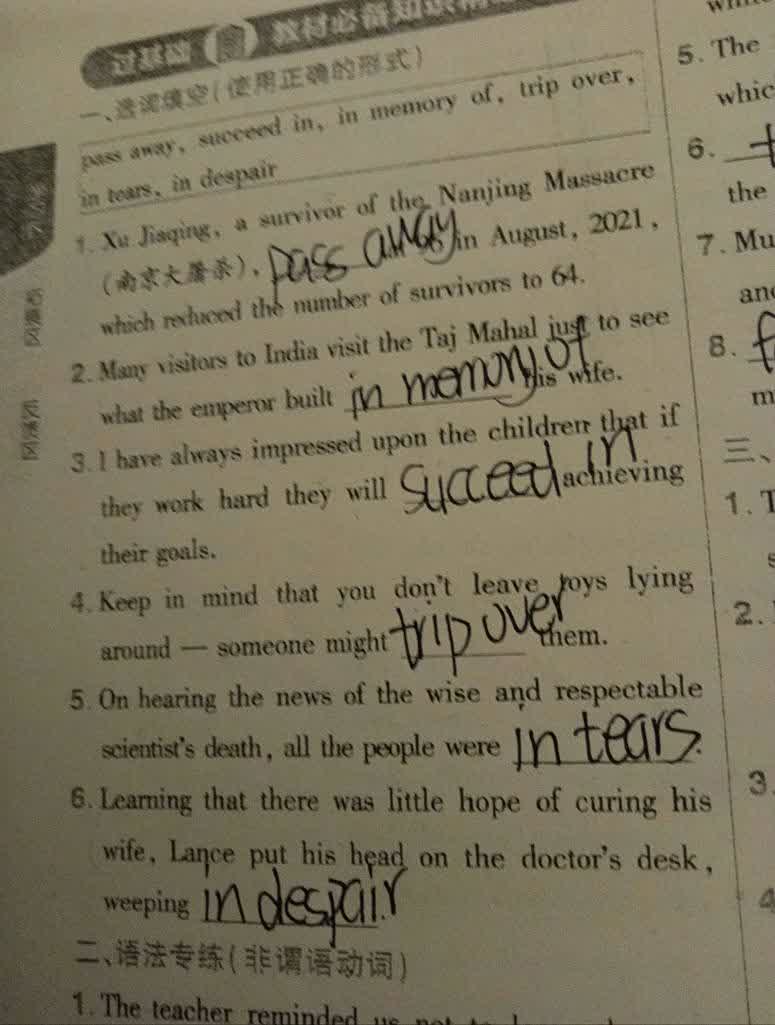 过基础 教材必备知识精
一、选词填空(使用正确的形式)
pass away, succeed in, in memory of, trip over,
in tears, in despair
1. Xu Jiaqing, a survivor of the Nanjing Massacre
(南京大屠杀), pass away in August, 2021,
which reduced the number of survivors to 64.
2. Many visitors to India visit the Taj Mahal just to see
what the emperor built in memory of his wife.
3. I have always impressed upon the children that if
they work hard they will succeed in achieving
their goals.
4. Keep in mind that you don't leave toys lying
around — someone might trip over them.
5. On hearing the news of the wise and respectable
scientist's death, all the people were in tears.
6. Learning that there was little hope of curing his
wife, Lance put his head on the doctor's desk,
weeping in despair.
二、语法专练(非谓语动词)
1. The teacher reminded us not to
5. The
whic
6.
the
7. Mu
and
8.
m
三、
1. T
s
2.
3.
4